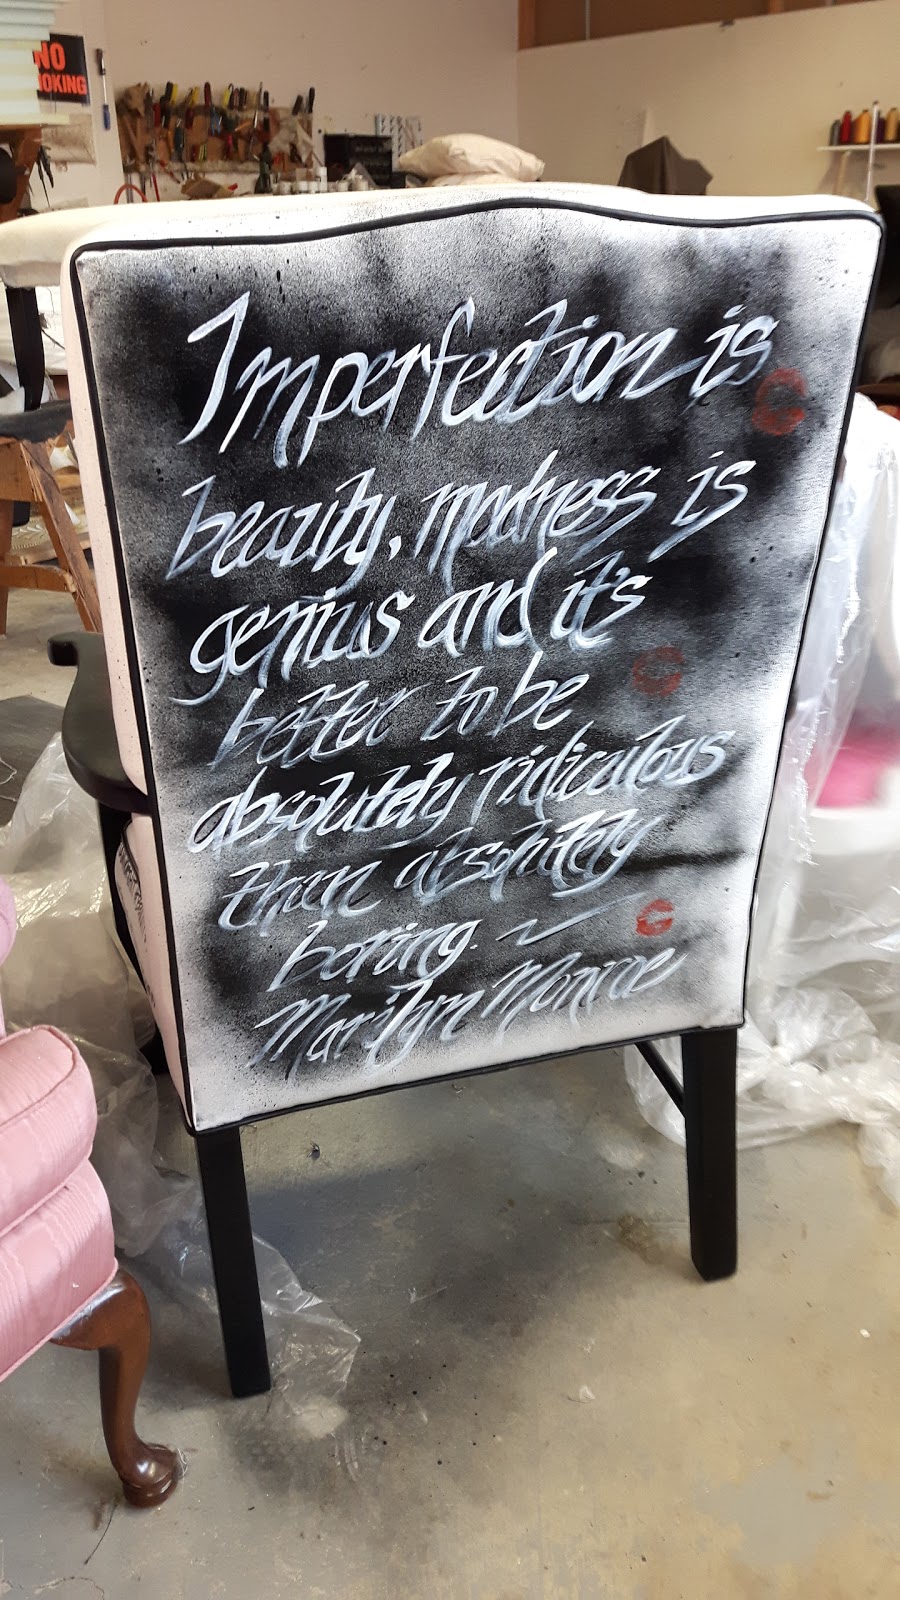 NO
Imperfection is
beauty, madness is
genius and it's
better to be
absolutely ridiculous
than absolutely
boring.
Marilyn Monroe